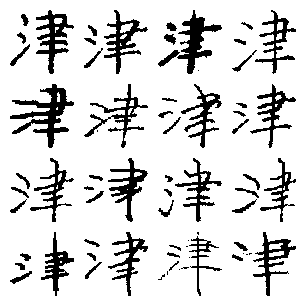 津津津津
津津津津
津津津津
津津津津